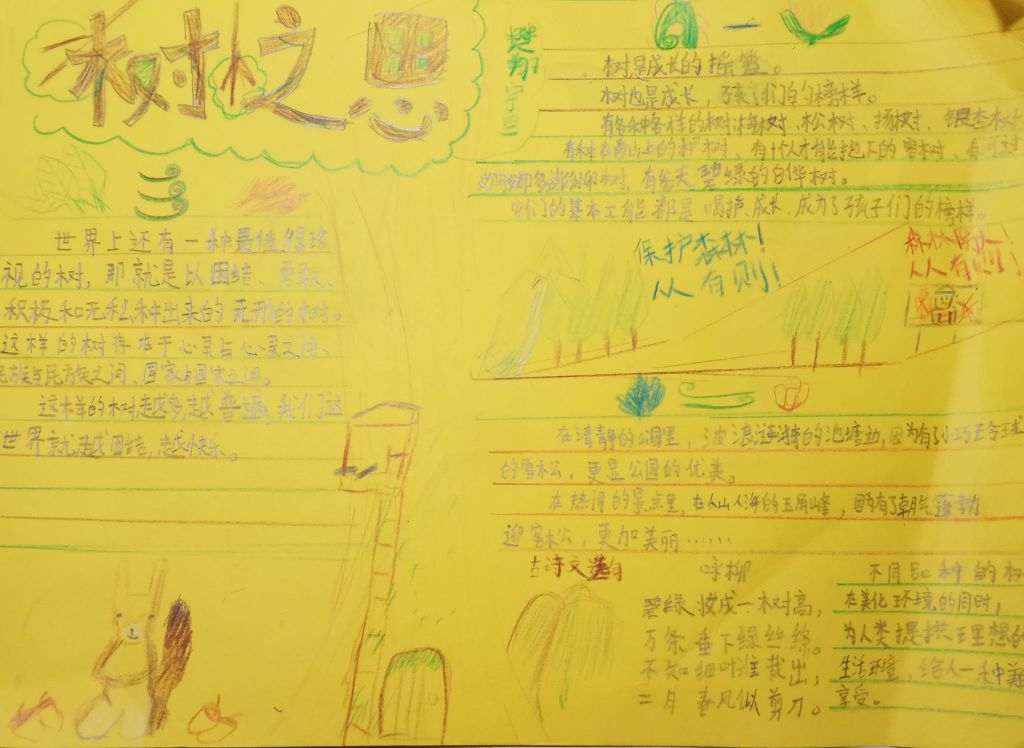 树之思
一
二
世界上还有一种最值得珍
视的树，那就是以团结、勇敢、
积极和无私种出来的无形的树。
这样的树存在于心灵与心灵之间、
民族与民族之间、国家与国家之间。
这样的树越多，越普遍，我们这
世界就越团结，越快乐。
树是成长的摇篮。
树也是成长，孩子们的榜样。
有各种各样的树：梅树、松树、杨树、银杏树
有种在香山上的护树、有十个人才能抱下的雪树、有河边
又阿娜多姿的柳树，有参天碧绿的白桦树。
它们的基本工能都是喝护成长，成为了孩子们的榜样。
保护森林！
人人有则！
森林防火！
人人有则！
三
在清静的公园里，波浪涟漪的池塘边，因为有了小巧玉令珑
的雪松，更显公园的优美。
在热闹的景点里，在人山人海的玉屏山峰，因为有了朝气蓬勃
迎客松，更加美丽……
古诗文选
咏柳
碧绿妆成一树高，
万条垂下绿丝绦。
不知细叶谁裁出，
二月春风似剪刀。
不同品种的树
在美化环境的同时，
为人类提供王里想的
生活环境，给人一种美
享受。